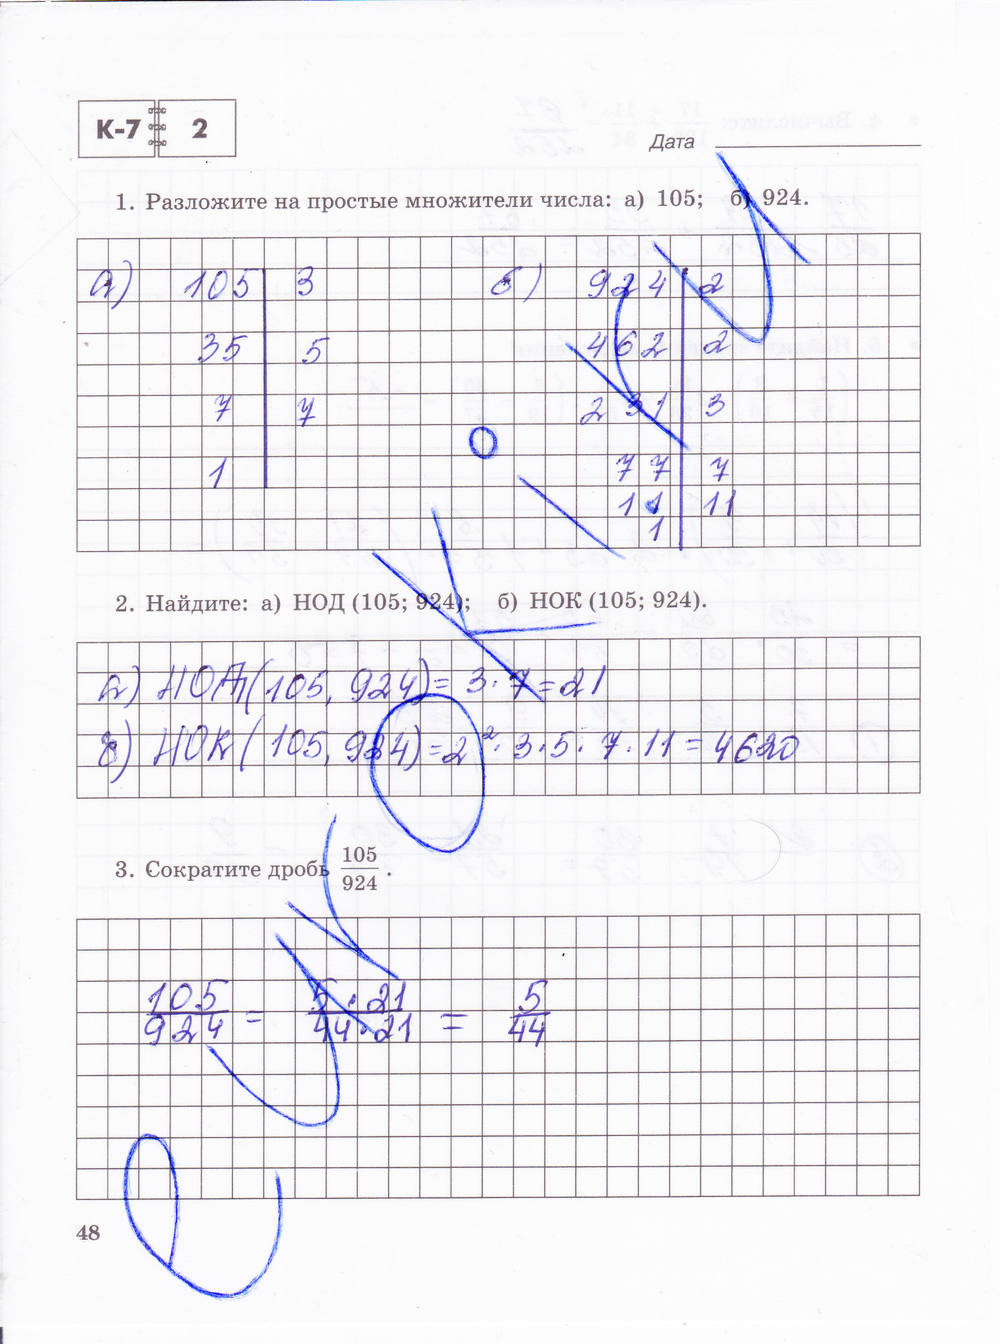 К-7 2
Дата
1. Разложите на простые множители числа: а) 105; б) 924.
а) 105 | 3
35 | 5
7 | 7
1
б) 924 | 2
462 | 2
231 | 3
77 | 7
11 | 11
1
2. Найдите: а) НОД (105; 924); б) НОК (105; 924).
а) НОД(105, 924) = 3·7 = 21
б) НОК(105, 924) = 2²·3·5·7·11 = 4620
3. Сократите дробь 105/924.
105/924 = 5·21/44·21 = 5/44
48